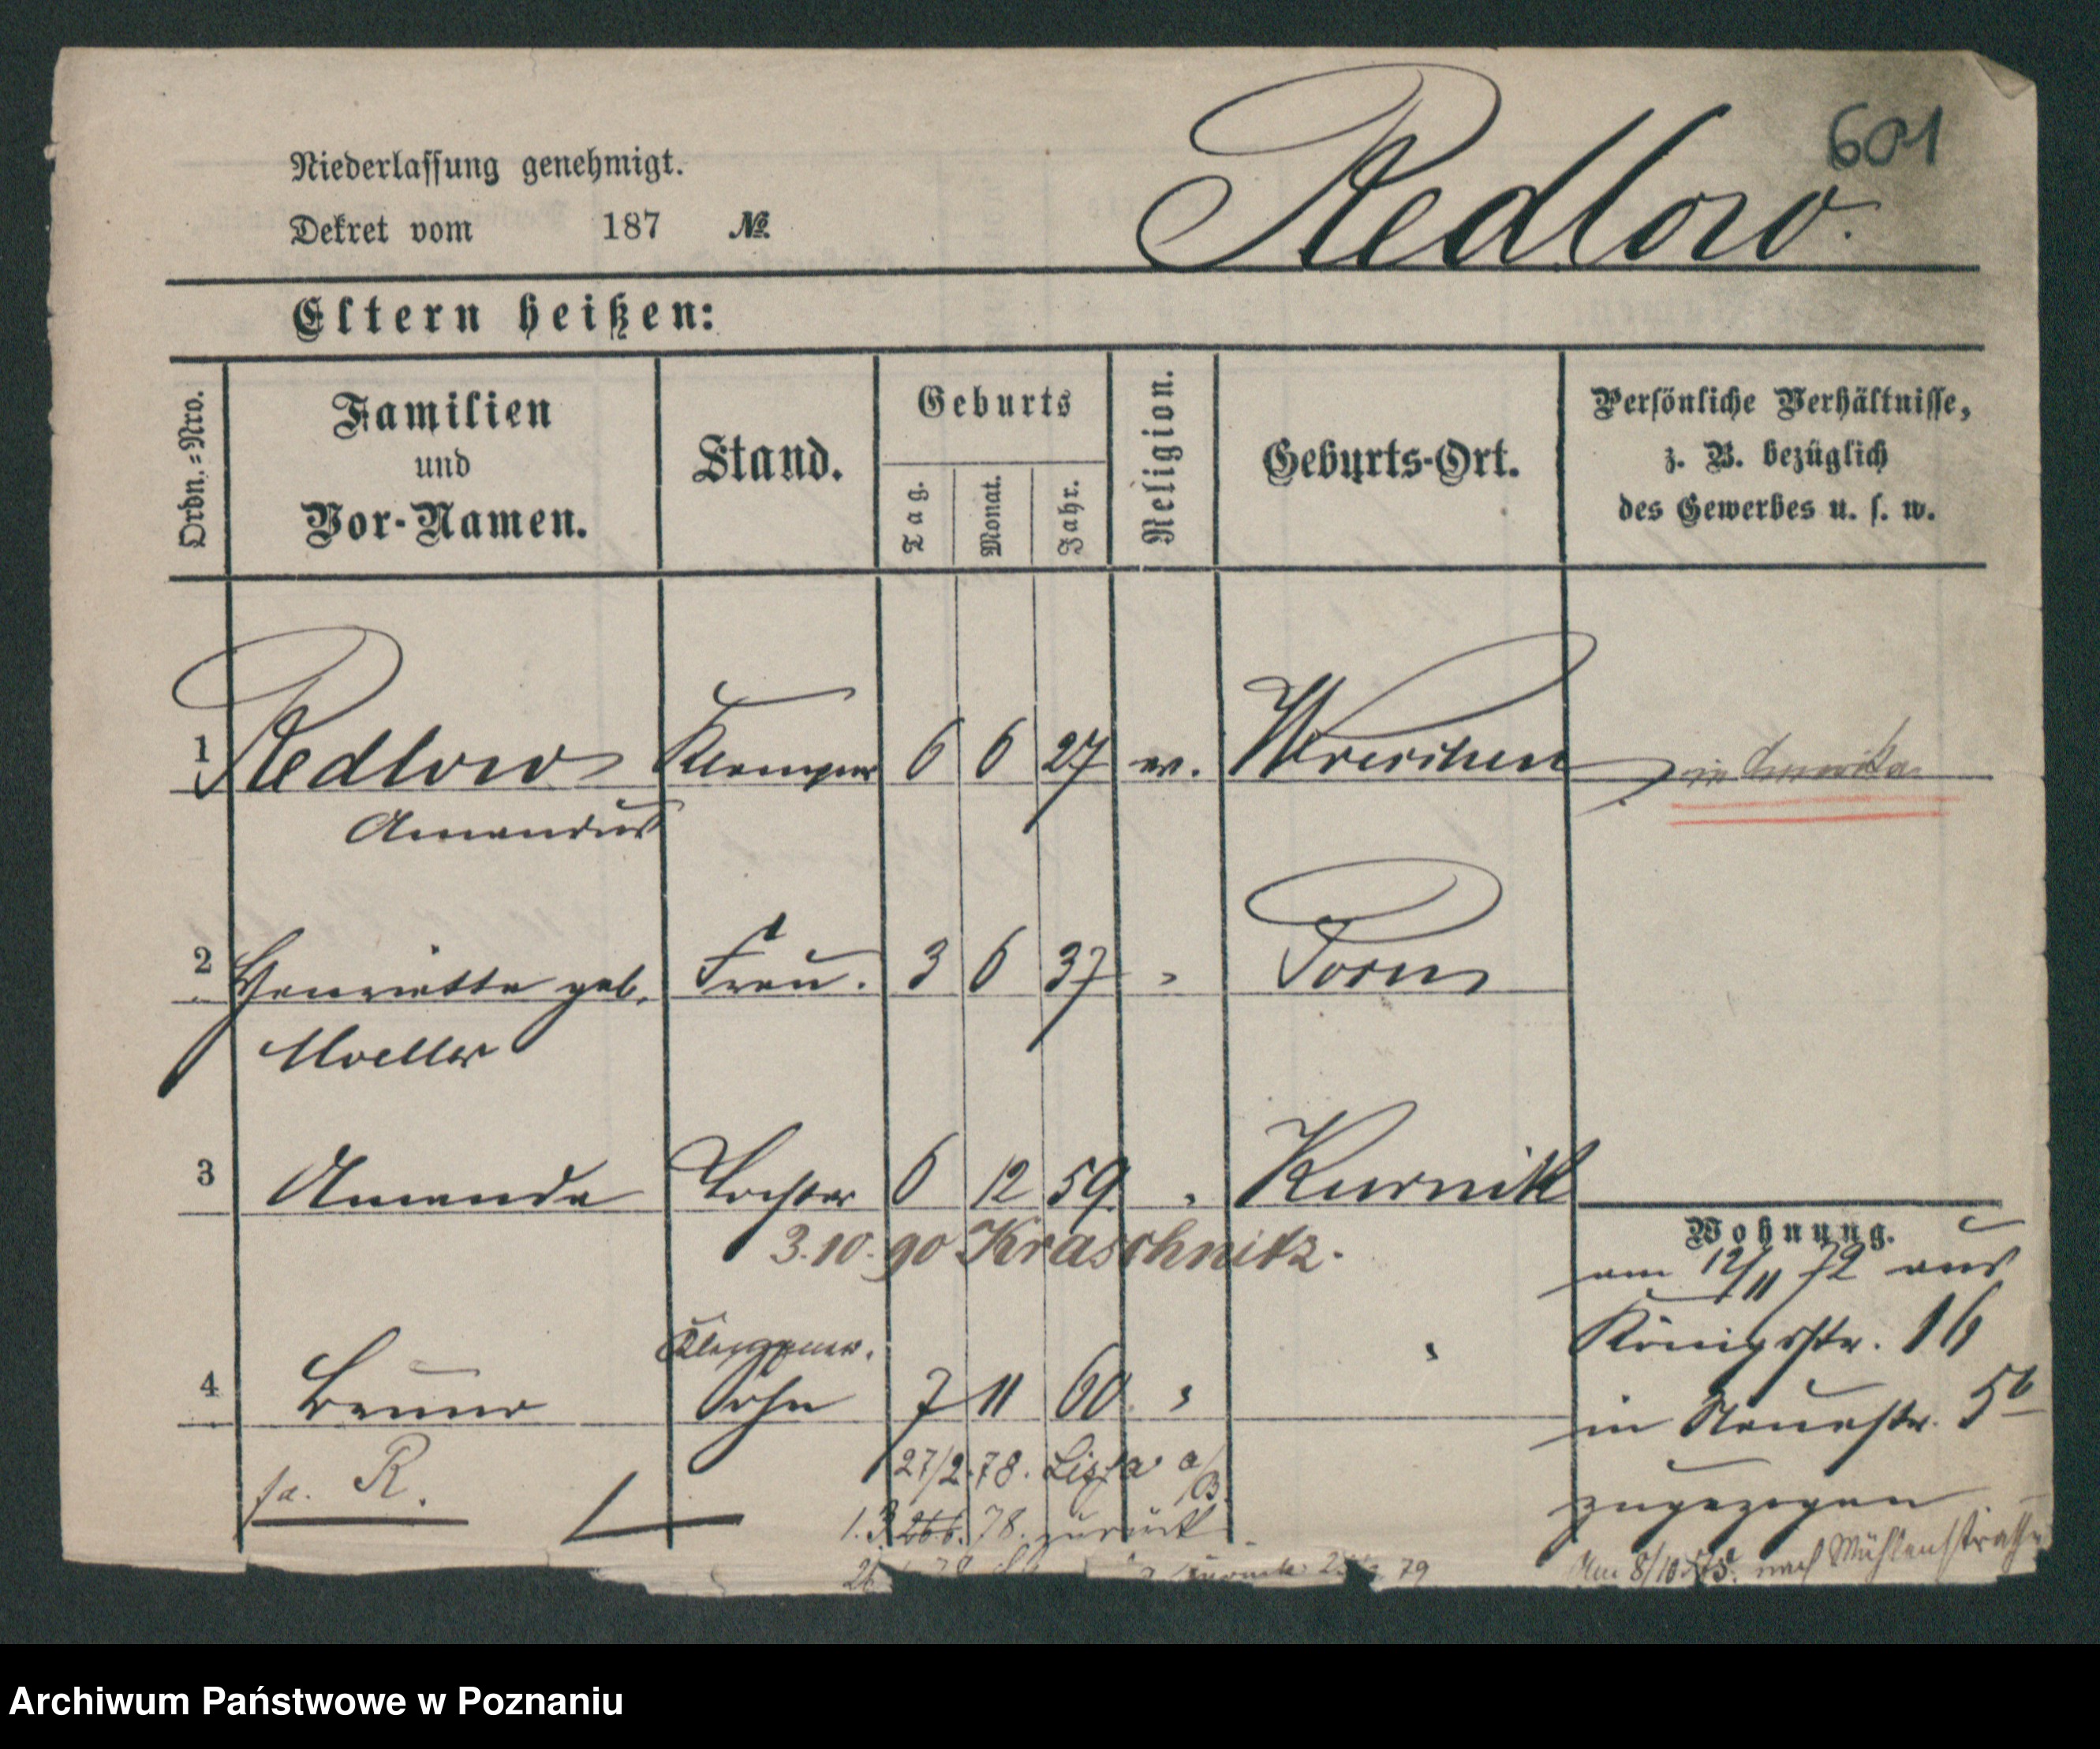 601
Redlow.
Niederlassung genehmigt.
Dekret vom 187 №
Eltern heißen:
Ordn.=Nro.
Familien
und
Vor-Namen.
Stand.
Geburts
Tag.
Monat.
Jahr.
Religion.
Geburts-Ort.
Persönliche Verhältnisse,
z. B. bezüglich
des Gewerbes u. s. w.
1 Redlow Klempner 6 6 27 ev. Wreschen in Amerika
Amandus
2 Henriette geb. Frau. 3 6 37 " Posen
Moeller
3 Amanda Tochter 6 12 59. " Kurnik
3.10.90 Kraschnitz.
Wohnung.
am 12/11 72 aus
Königsstr. 16
in Neuestr. 5b
zugezogen
Am 8/10 nach Mühlenstraße
Klempner.
4 Bruno Sohn 7 11 60. " "
27/2.78. Lissa a/B.
1.3 78. zurück
fa. R.
zurück 79
Archiwum Państwowe w Poznaniu